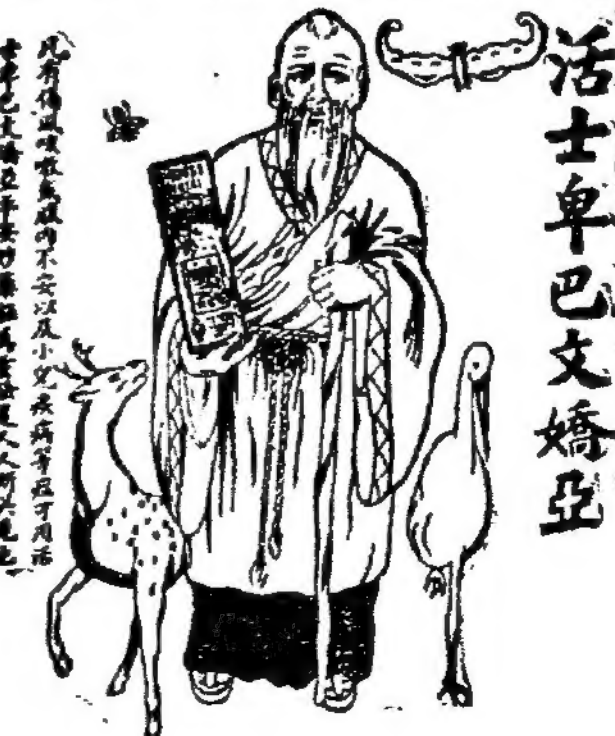 活士卑巴文嬌亞
凡有傷風咳嗽氣喘內不安以及小兒疾病等症可用活
士卑巴文嬌亞平安
人人所共見也